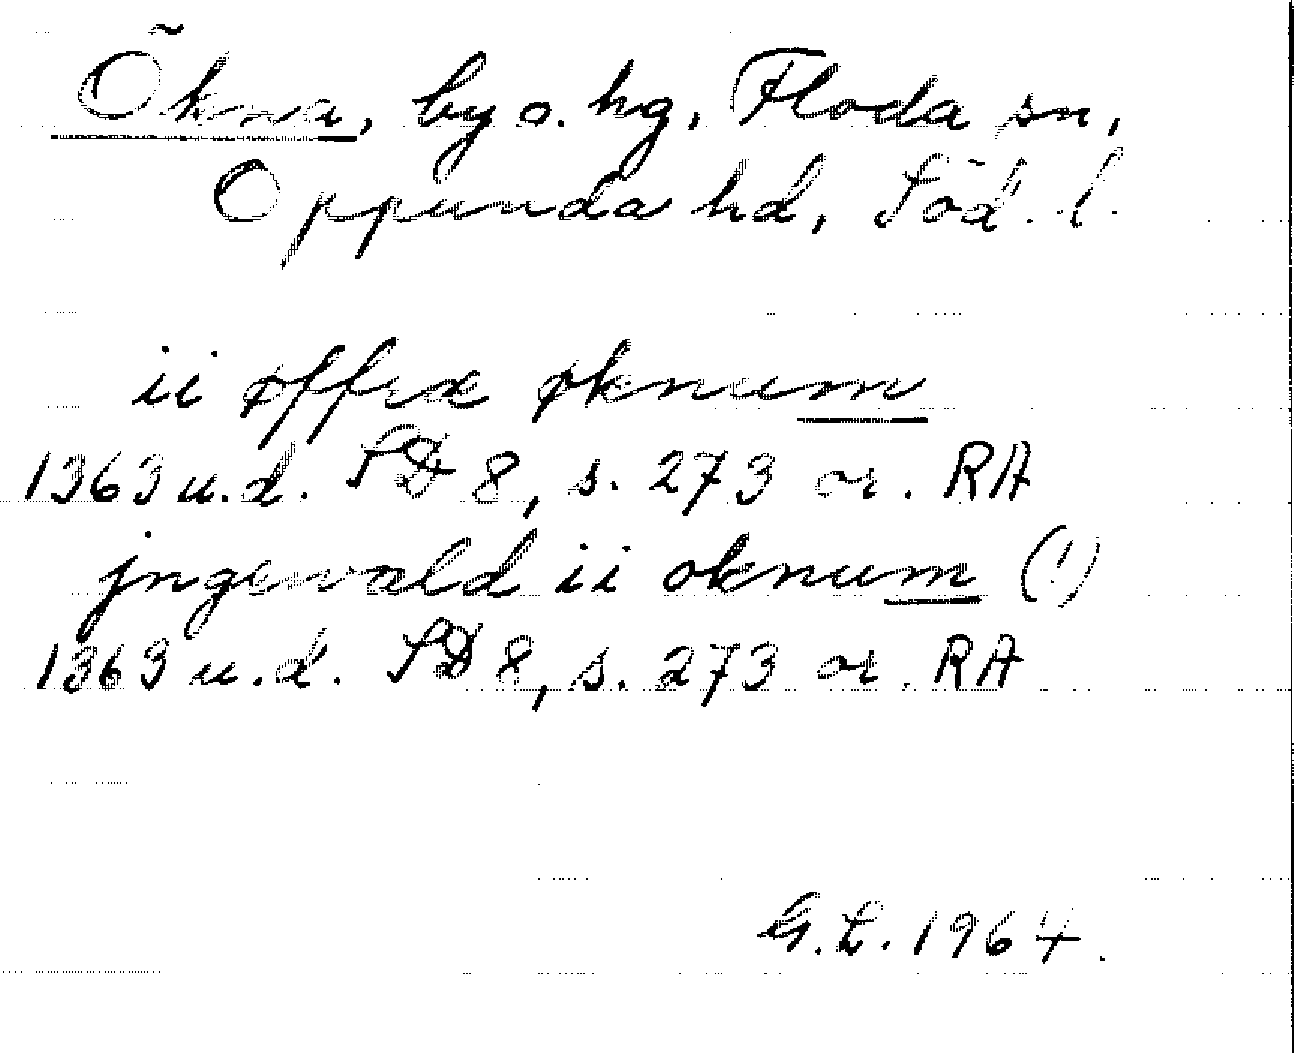 Õkna, by o. hg, Floda sn,
Oppunda hd, Söd. l.
ii øffræ øknum
1363 u.d. SD 8, s. 273 or. RA
jngewald ii oknum (!)
1363 u.d. SD 8, s. 273 or. RA
G.L. 1964.